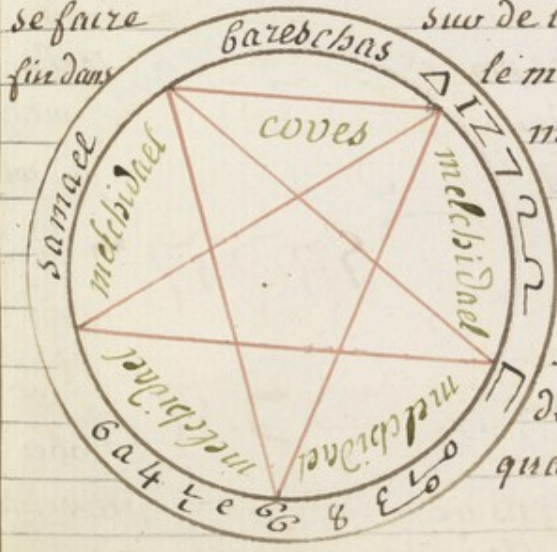 se faire
sur de
fin dans
le m
bareschas
samael
coves
melchidael
melchidael
melchidael
melchidael
melchidael
6 a 4
qua